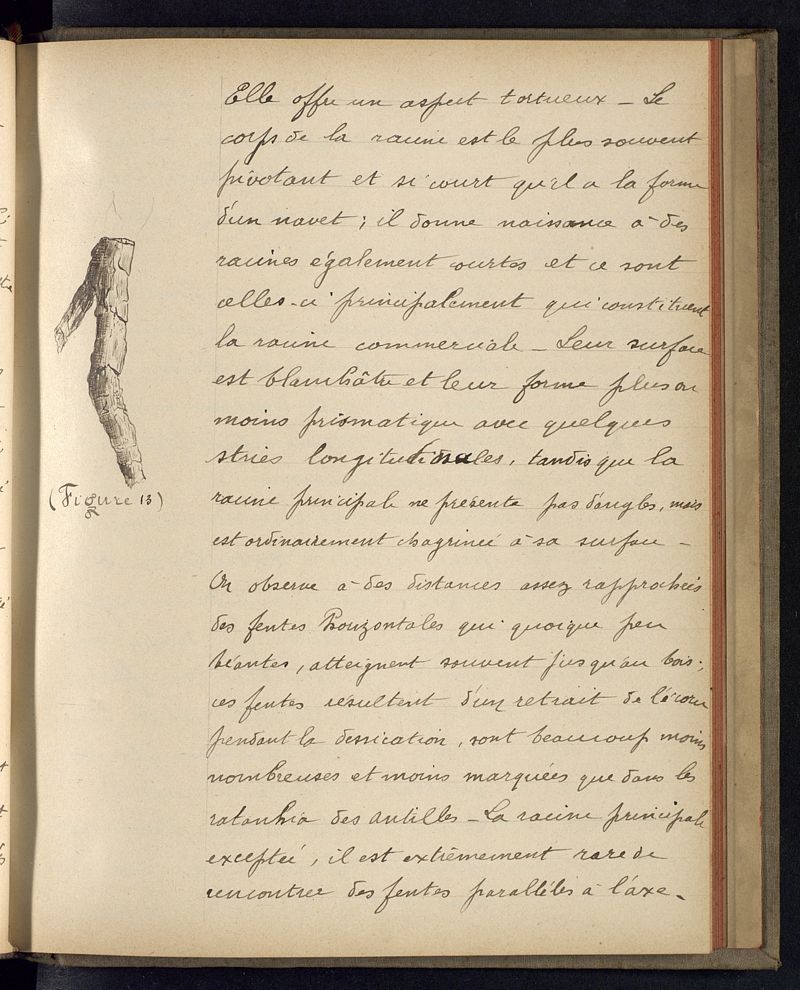 Elle offre un aspect tortueux – Le
corps de la racine est le plus souvent
pivotant et si court qu'il a la forme
d'un navet ; il donne naissance à des
racines également courtes et ce sont
celles-ci principalement qui constituent
la racine commerciale – Leur surface
est blanchâtre et leur forme plus ou
moins prismatique avec quelques
stries longitudinales, tandis que la
racine principale ne présente pas d'angles, mais
est ordinairement chagrinée à sa surface –
On observe à des distances assez rapprochées
des fentes horizontales qui quoique peu
béantes, atteignent souvent jusqu'au bois ;
ces fentes résultent d'un retrait de l'écorce
pendant la dessication, sont beaucoup moins
nombreuses et moins marquées que dans les
ratanhia des Antilles – La racine principale
exceptée, il est extrêmement rare de
rencontrer des fentes parallèles à l'axe –
(Figure 13)